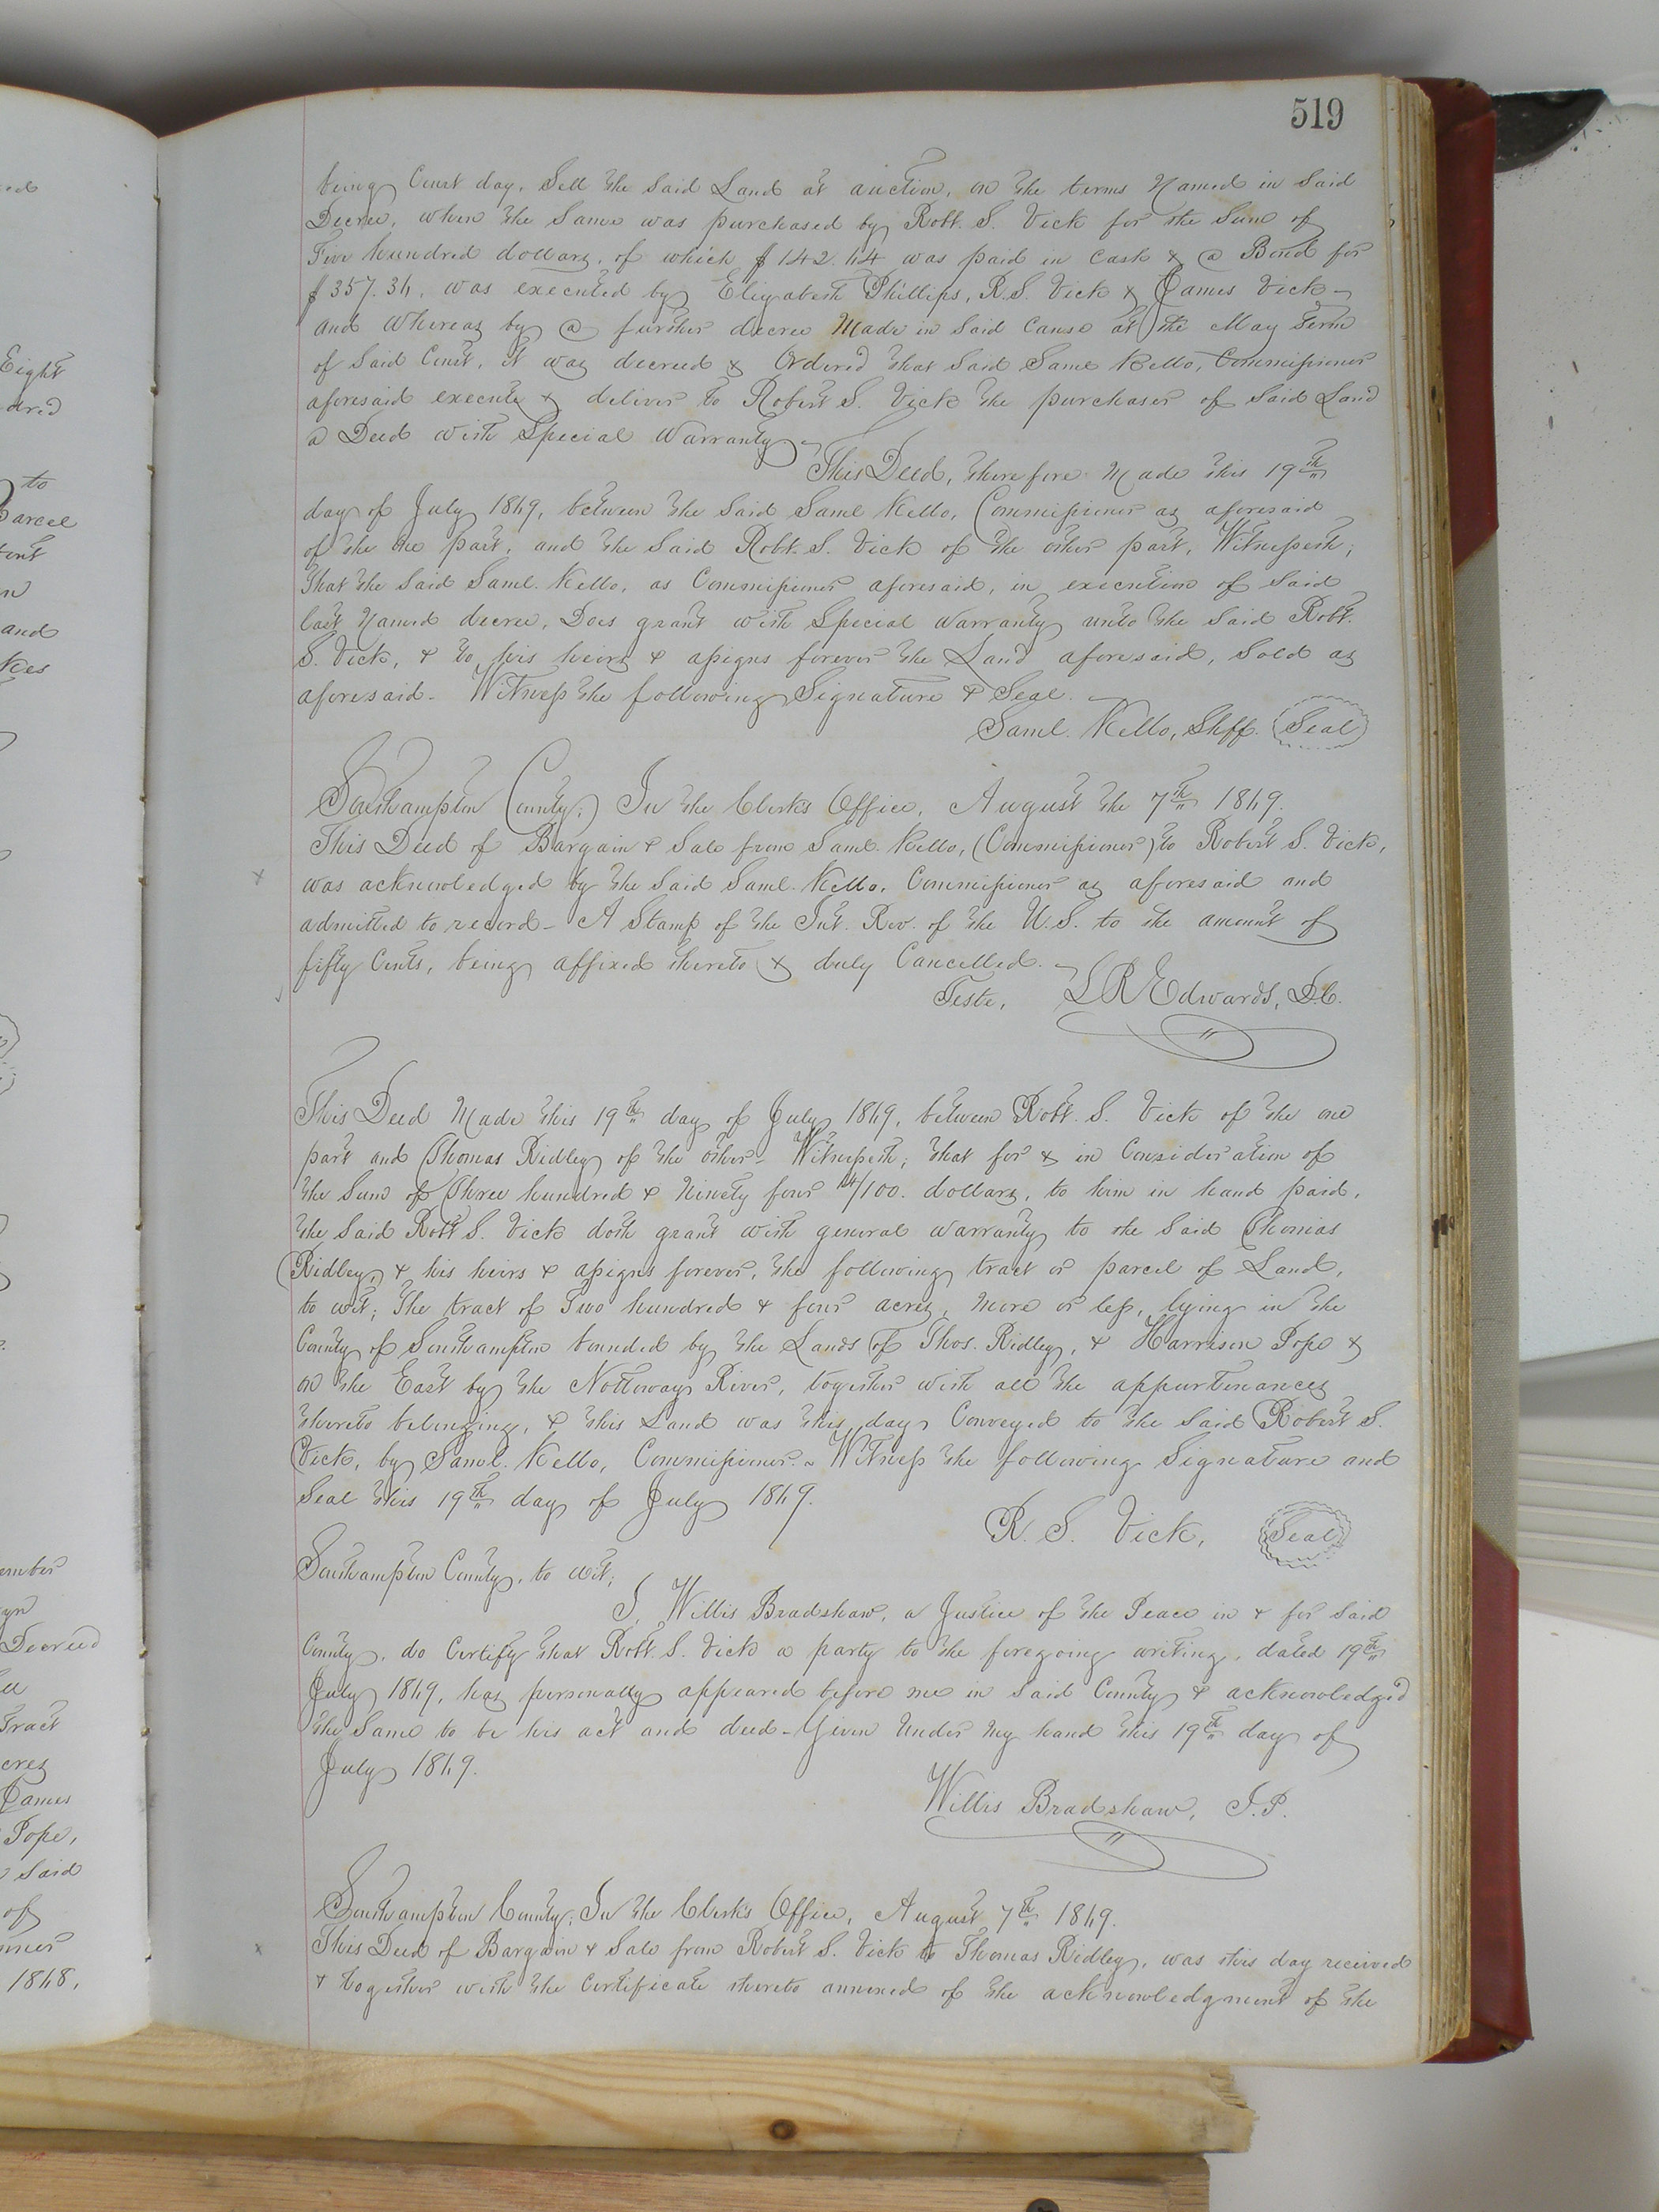 519
being Court day, Sell the Said Land at auction, on the terms Named in Said
Decree, when the Same was purchased by Robt. S. Vick for the Sum of
Five hundred dollars, of which $142.64 was paid in Cash & a Bond for
$357.36, was executed by Elizabeth Phillips, R.S. Vick & James Vick-
and Whereas by a further decree Made in Said Cause at the May Term
of Said Court, it was decreed & Ordered that Said Saml Kello, Commissioner
aforesaid execute & deliver to Robert S. Vick the purchaser of Said Land
a Deed with Special Warranty-
This Deed, therefore Made this 19th
day of July 1869, between the Said Saml Kello, Commissioner as aforesaid
of the one part, and the Said Robt. S. Vick of the other part, Witnesseth;
that the Said Saml. Kello, as Commissioner aforesaid, in execution of Said
last Named decree, Does grant with Special Warranty unto the Said Robt.
S. Vick, & to his heirs & assigns forever the Land aforesaid, Sold as
aforesaid- Witness the following Signature & Seal.-
Saml. Kello, Shff. Seal
Southampton County;) In the Clerk's Office, August the 7th 1869.
This Deed of Bargain & Sale from Saml. Kello, (Commissioner) to Robert S. Vick,
x was acknowledged by the Said Saml. Kello, Commissioner as aforesaid and
admitted to record- A Stamp of the Int. Rev. of the U.S. to the amount of
fifty Cents, being affixed thereto & duly Cancelled.-
Teste, L R Edwards, D.C.
This Deed Made this 19th day of July 1869, between Robt. S. Vick of the one
part and Thomas Ridley of the other- Witnesseth; that for & in Consideration of
the Sum of Three hundred & Ninety four 14/100. dollars, to him in hand paid,
the Said Robt S. Vick doth grant with general warranty to the Said Thomas
Ridley, & his heirs & assigns forever, the following tract or parcel of Land,
to wit; The tract of Two hundred & four acres, More or less, lying in the
County of Southampton bounded by the Lands of Thos. Ridley, & Harrison Pope &
on the East by the Nottoway River, together with all the appurtenances
thereto belonging, & this Land was this day Conveyed to the Said Robert S.
Vick, by Saml. Kello, Commissioner.- Witness the following Signature and
Seal this 19th day of July 1869.
R. S. Vick, Seal
Southampton County, to wit;
I, Willis Bradshaw, a Justice of the Peace in & for Said
County, do Certify that Robt. S. Vick a party to the foregoing writing, dated 19th
July 1869, has personally appeared before me in Said County & acknowledged
the Same to be his act and deed- Given Under My hand this 19th day of
July 1869.
Willis Bradshaw, J.P.
Southampton County; In the Clerk's Office, August 7th 1869.
x This Deed of Bargain & Sale from Robert S. Vick to Thomas Ridley, was this day received
& together with the Certificate thereto annexed of the acknowledgment of the
Eight
to
Parcel
and
Decreed
Tract
acres
James
Pope,
Said
of
1868,